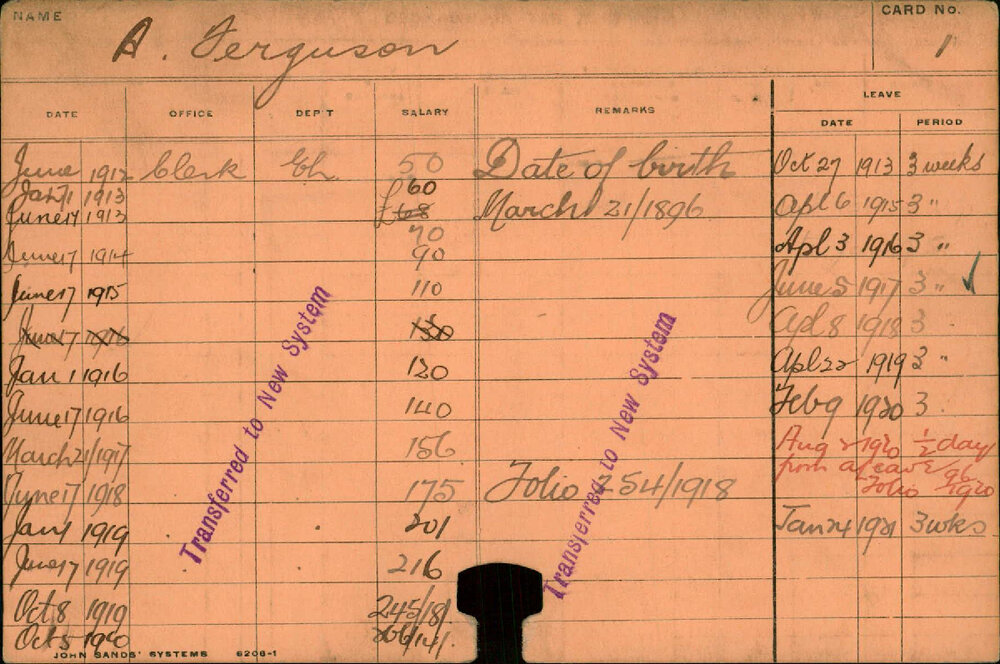 NAME
A. Ferguson
CARD No.
1
DATE OFFICE DEP'T SALARY REMARKS LEAVE
DATE PERIOD
June 1912 Clerk Ch. 50 Date of birth Oct 27 1913 3 weeks
Jan 1 1913 £60
June 17 1913 £68 March 21/1896 Apl 6 1915 3 "
70
June 17 1914 90 Apl 3 1916 3 "
June 17 1915 110 June 5 1917 3 " ✓
June 17 1916 130 Apl 8 1918 3
Jan 1 1916 120 Apl 22 1919 3 "
June 17 1916 140 Feb 9 1920 3
March 21/1917 156 Aug 2 1920 1/2 day
from leave 96
June 17 1918 175 Folio 254/1918 Folio 1920
Jan 1 1919 201 Jan 24 1921 3 wks
June 17 1919 216
Oct 8 1919 245/18/.
Oct 5 1920 266/14/.
Transferred to New System
Transferred to New System
JOHN SANDS' SYSTEMS 6206-1